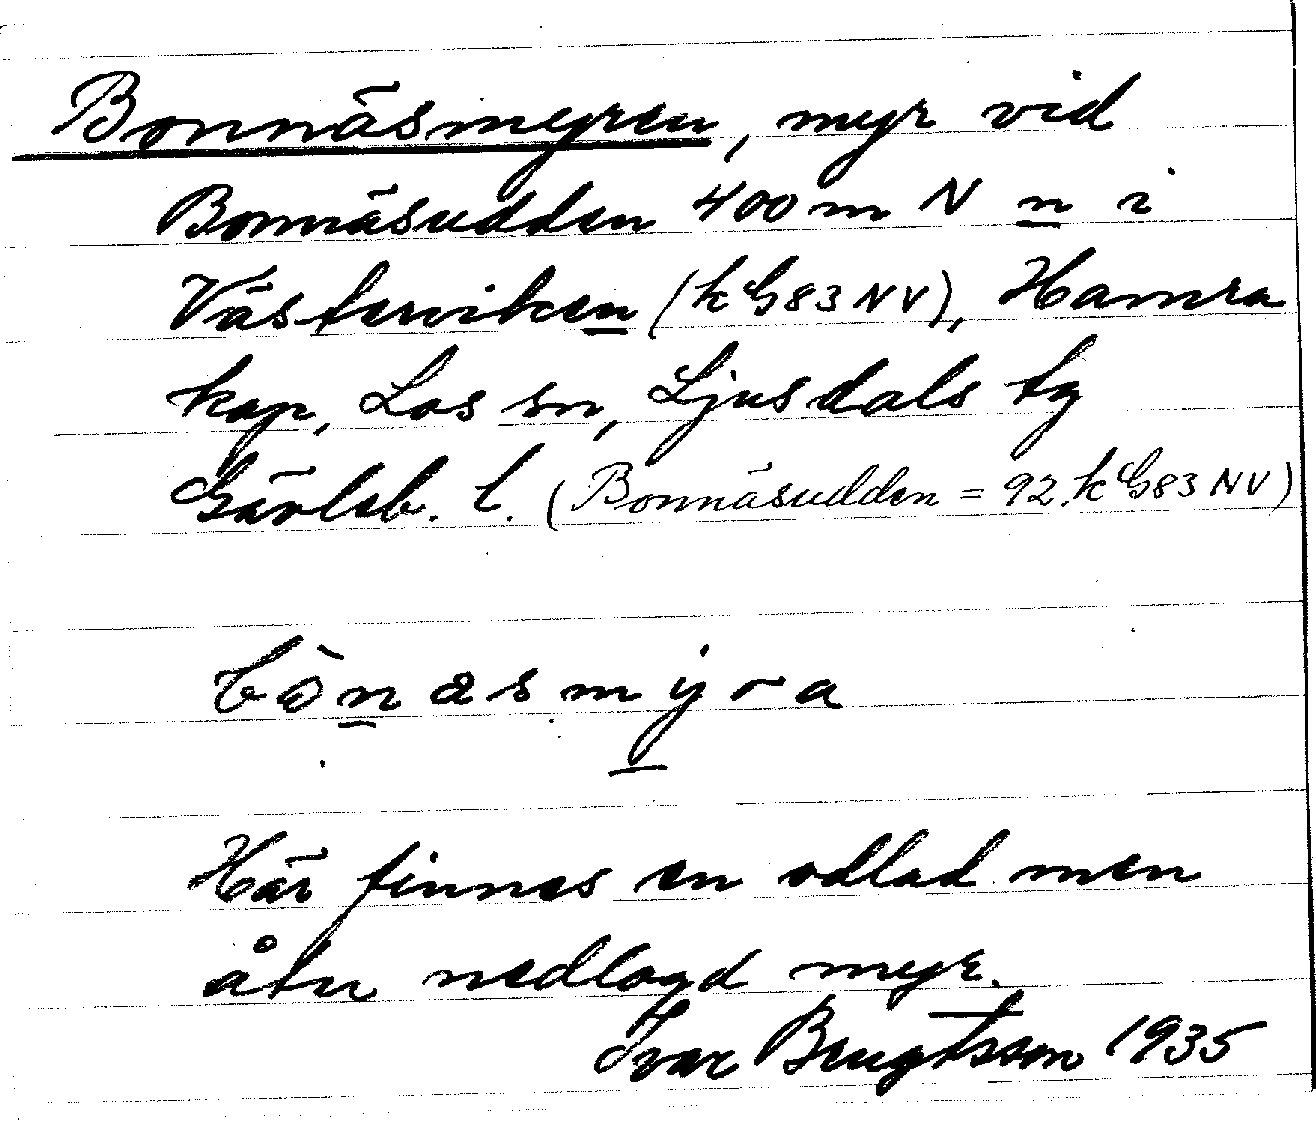 Bonnäsmyren, myr vid
Bonnäsudden 400 m N n i
Västerviken (kG83NV), Hamra
kap, Los sn, Ljusdals tg
Gävleb. l. (Bonnäsudden = 92.kG83NV)
bònasmyra
Här finnes en odlad men
åter nedlagd myr.
Ivar Bengtsson 1935